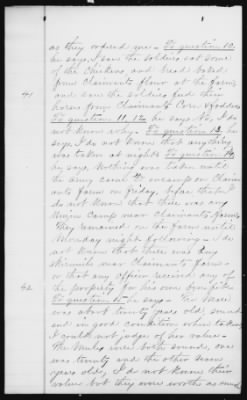 as they ordered me. To question 10.
he says, I saw the soldiers eat some
of the chickens and bread baked
from claimants flour at the farm,
and saw the soldiers feed their
41 horses from Claimants Corn & fodder.
To question 11, 12, he says No, I do
not know why. To question 13. he
says I do not know that anything
was taken at night. To question 14
he says, Nothing was taken until
the army came to encamp on Claim
ants farm on Friday, before that I do
not know that there was any
Union Camp near Claimants farm.
They remained on the farm until
Monday night following. I do
not know that there was any
skirmish near Claimants farm
or that any officer received any of
the property for his own benefit.
42 To question 15 he says. The Mare
was about twenty years old, sound
and in good condition when taken
I could not judge of her value.
The Mules were both sound, one
was twenty and the other seven
years old, I do not know their
value but they were worth as much